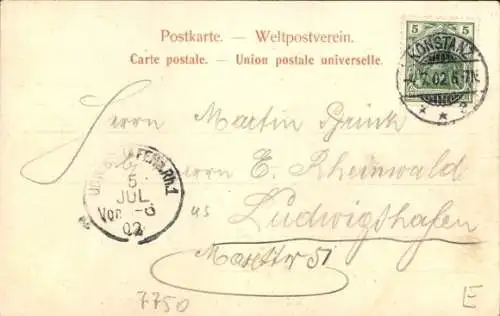 Postkarte. — Weltpostverein.
Carte postale. — Union postale universelle.
5 5
KONSTANZ
7.02.6-7N.
* * 2
Herrn Martin Brink
Herrn E. Rheinwald
aus
Ludwigshafen
LUDWIGSHAFEN a. Rh. 1
5
JUL
Vor -6
02
7750
E